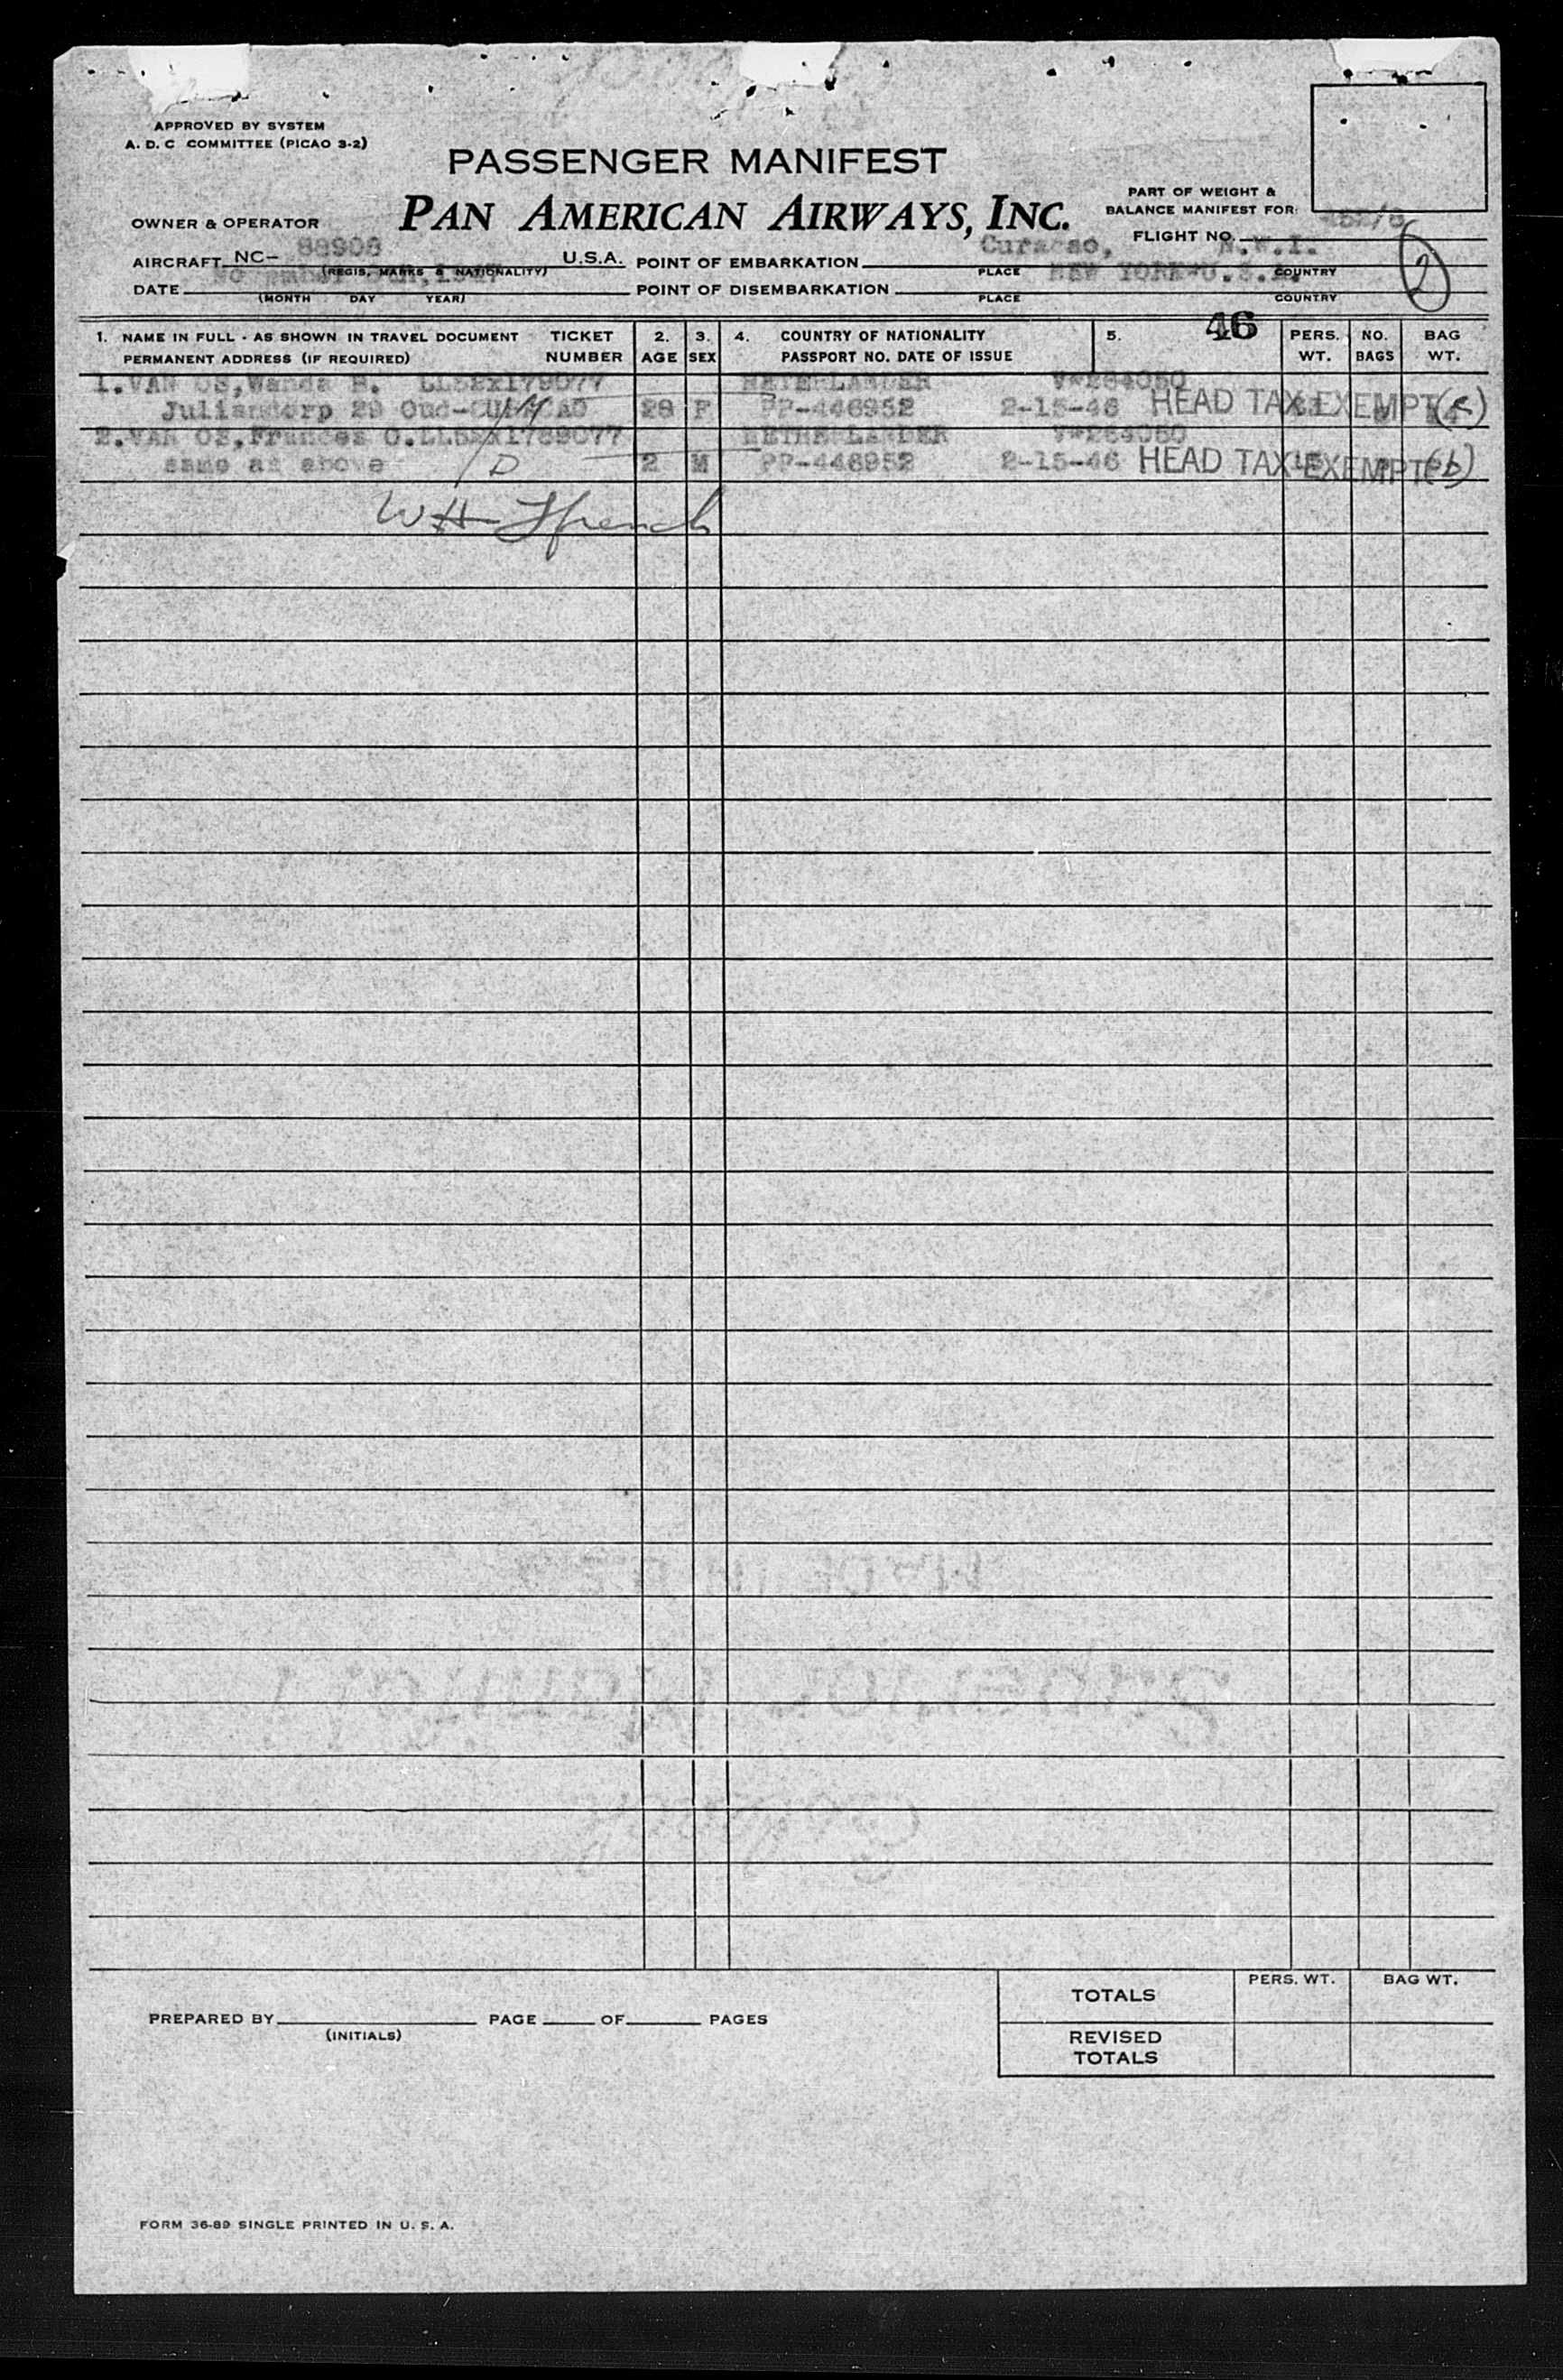 APPROVED BY SYSTEM
A. D. C COMMITTEE (PICAO 3-2)
PASSENGER MANIFEST
PAN AMERICAN AIRWAYS, INC.
OWNER & OPERATOR
PART OF WEIGHT &
BALANCE MANIFEST FOR:
FLIGHT NO.
AIRCRAFT NC- 88908 U.S.A.
(REGIS. MARKS & NATIONALITY)
POINT OF EMBARKATION Curacao, N.W.I.
PLACE COUNTRY
DATE 1947
(MONTH DAY YEAR)
POINT OF DISEMBARKATION NEW YORK U.S.A.
PLACE COUNTRY
2
1. NAME IN FULL - AS SHOWN IN TRAVEL DOCUMENT TICKET 2. 3. 4. COUNTRY OF NATIONALITY 5. 46 PERS. NO. BAG
PERMANENT ADDRESS (IF REQUIRED) NUMBER AGE SEX PASSPORT NO. DATE OF ISSUE WT. BAGS WT.
1.VAN OS,Wanda NETHERLANDER V*264050
Juliandorp 29 Oud-CURACAO 28 F PP-446952 2-15-46 HEAD TAX EXEMPT
2.VAN OS,Frances NETHERLANDER V*264050
same as above D 2 M PP-446952 2-15-46 HEAD TAX EXEMPT (b)
PREPARED BY PAGE OF PAGES
(INITIALS)
TOTALS PERS. WT. BAG WT.
REVISED
TOTALS
FORM 36-89 SINGLE PRINTED IN U. S. A.